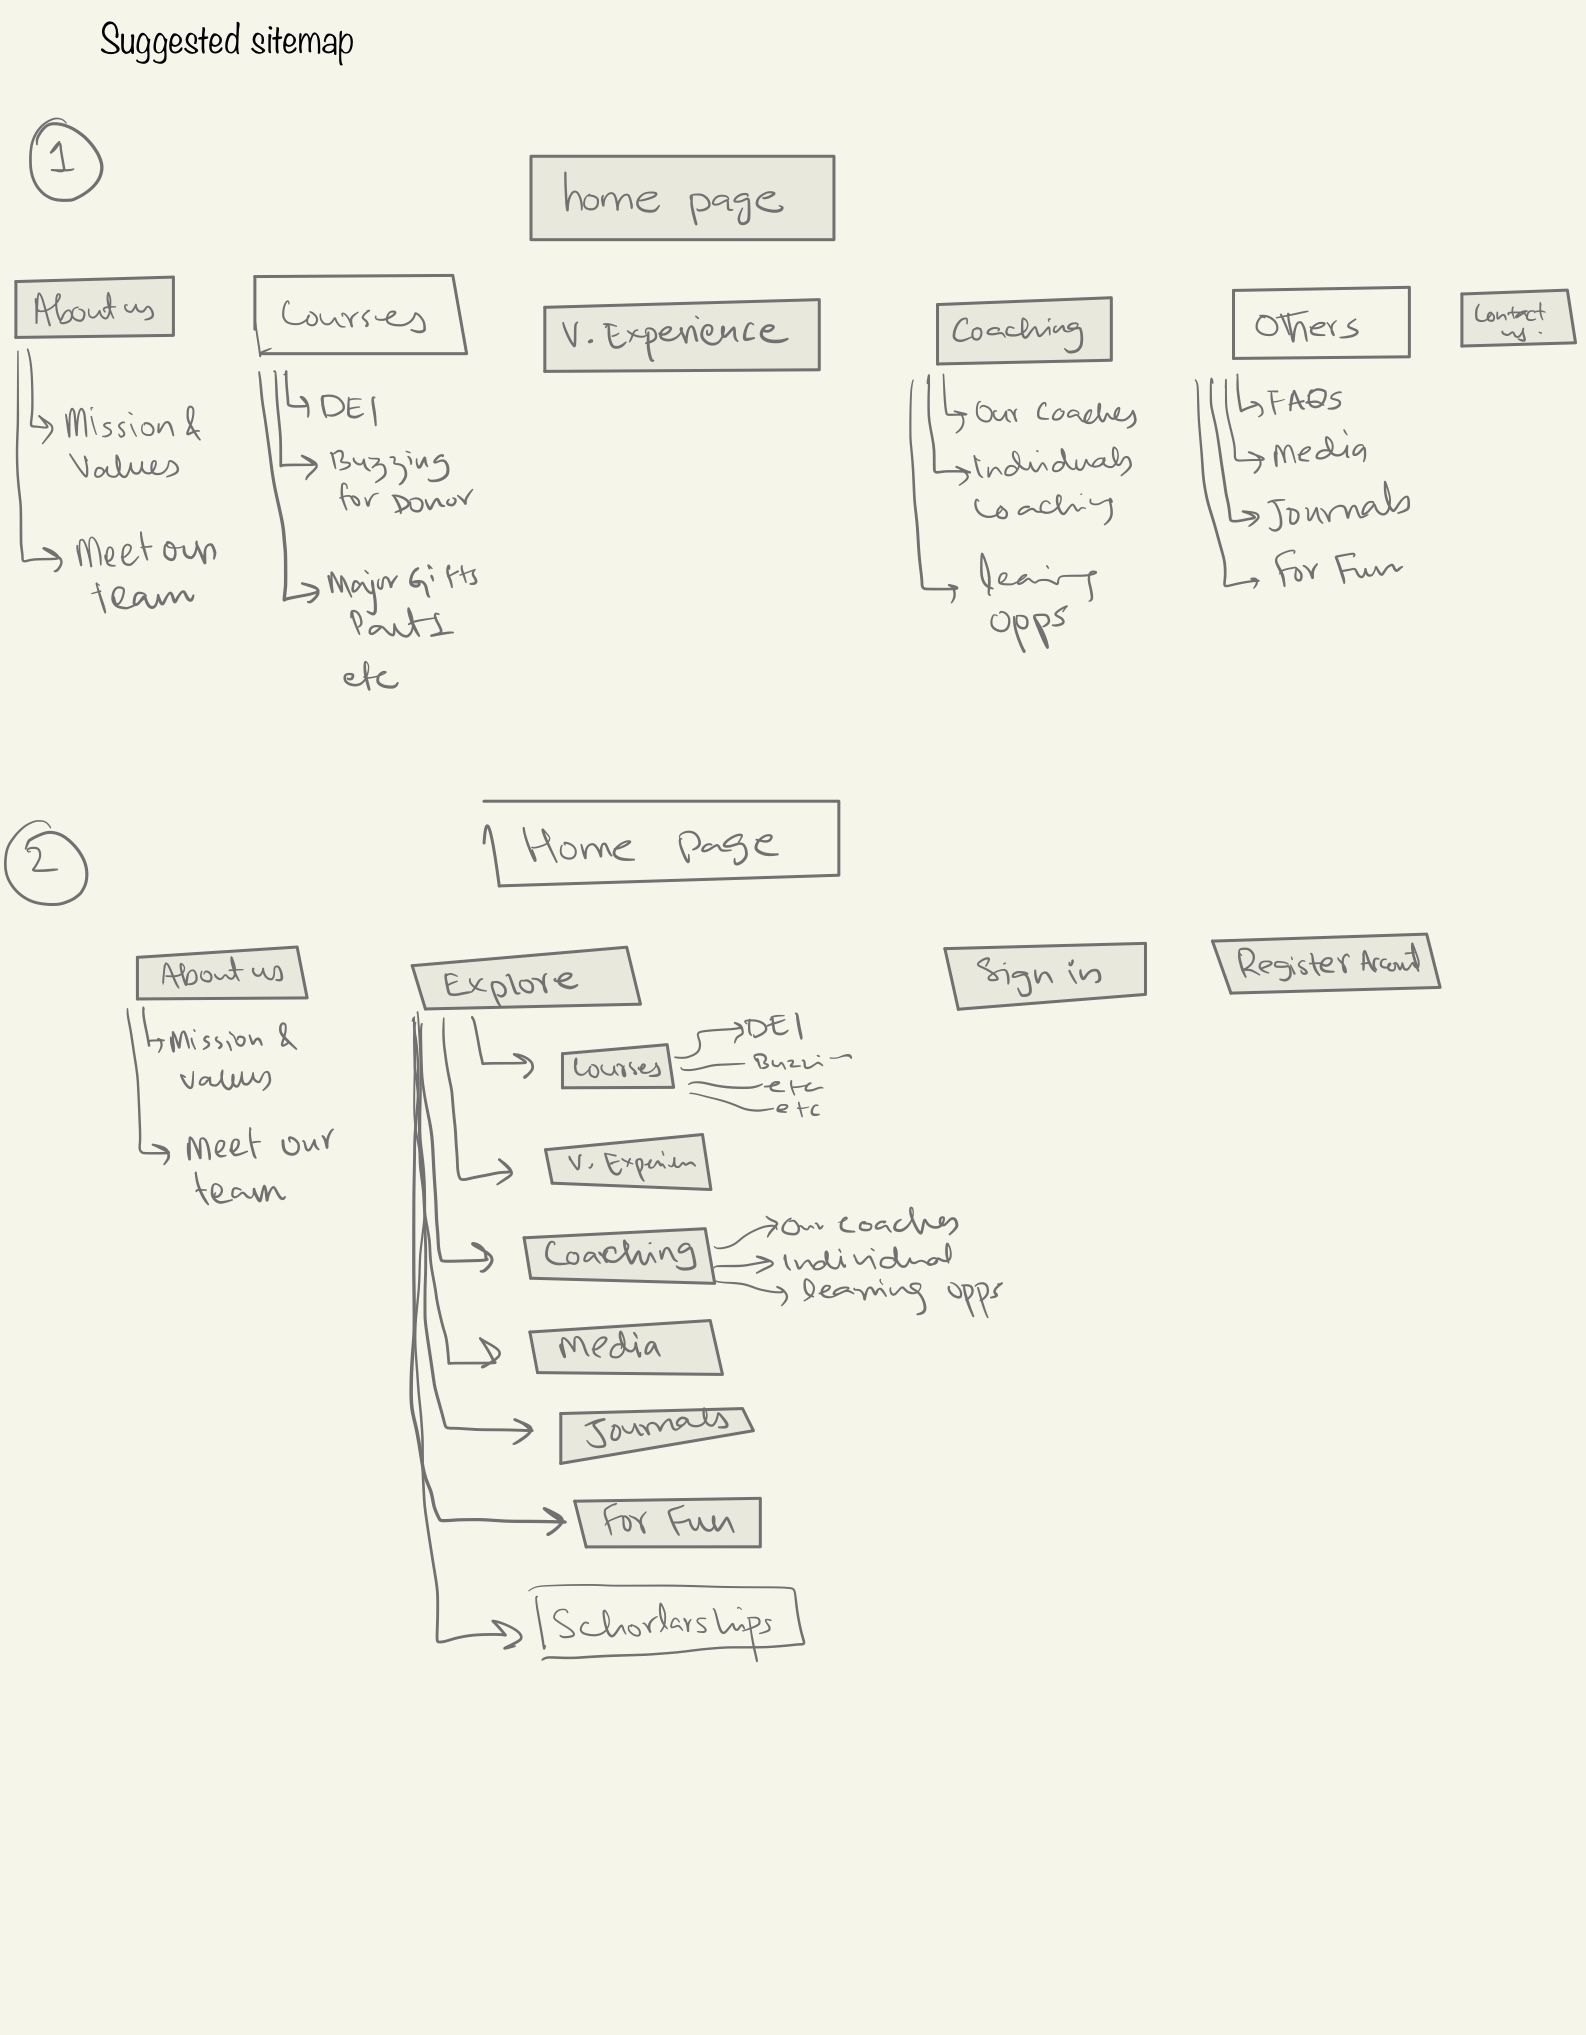 Suggested sitemap
1
home page
About us
Mission &
Values
Meet our
team
Courses
DEI
Buzzing
for Donor
Major Gifts
Part 1
etc
V. Experience
Coaching
Our coaches
Individuals
coaching
learning
opps
Others
FAQs
Media
Journals
For Fun
Contact
us
2
Home Page
About us
Mission &
values
Meet our
team
Explore
Courses
DEI
Buzzin
etc
etc
V. Experien
Coaching
Our coaches
Individual
learning opps
Media
Journals
For Fun
Schorlarships
Sign in
Register Account